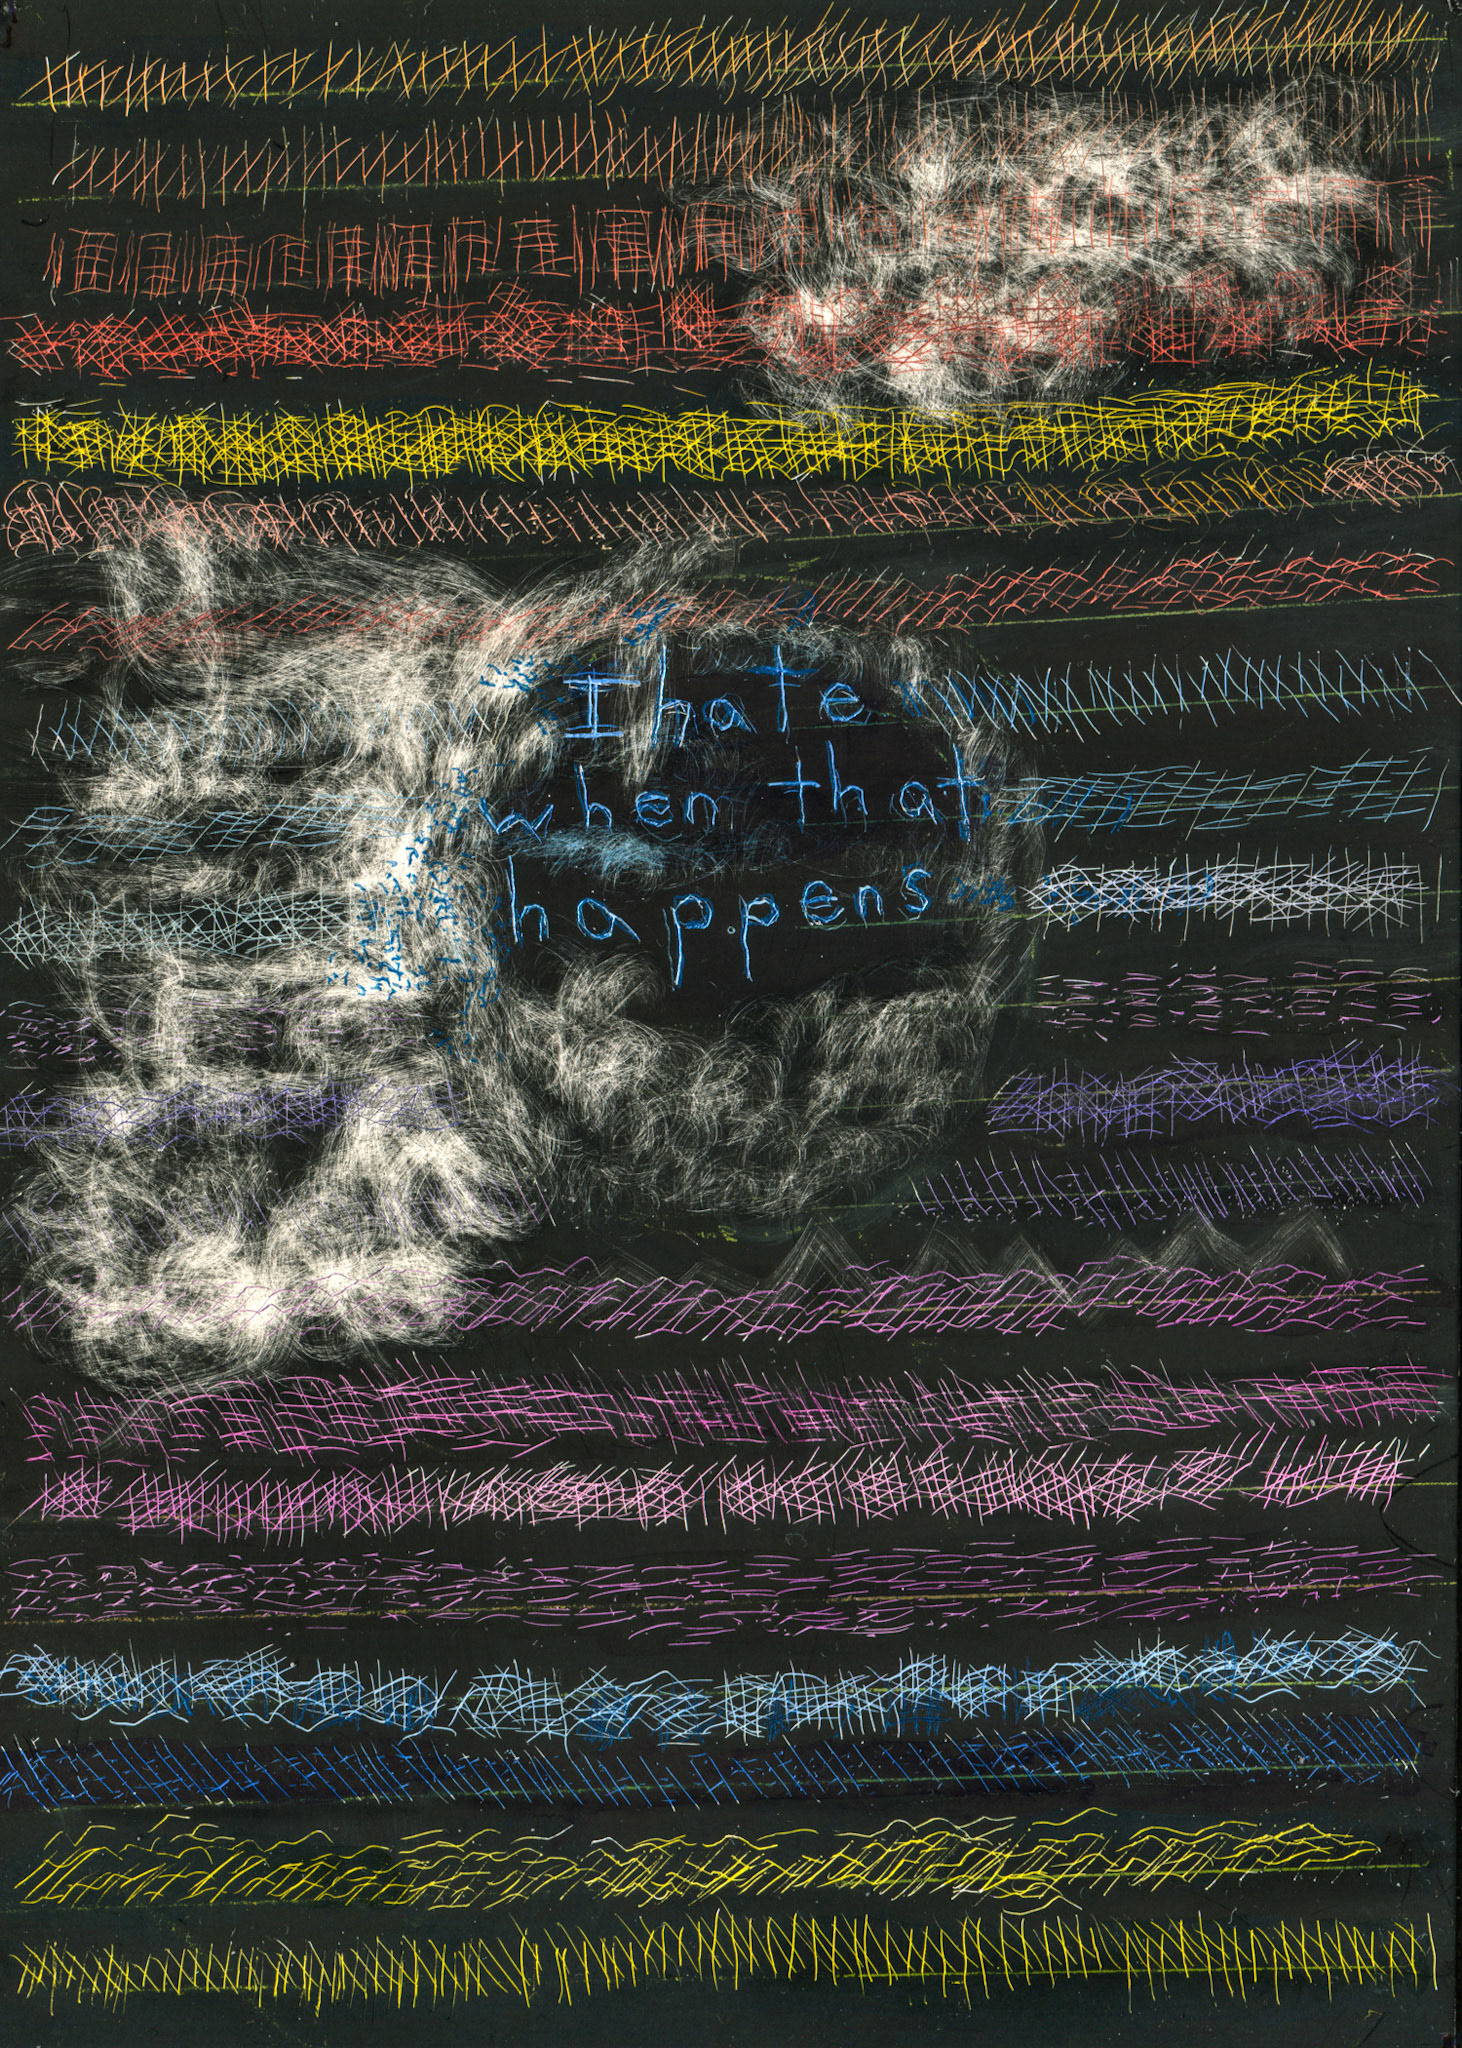 I hate
when that
happens